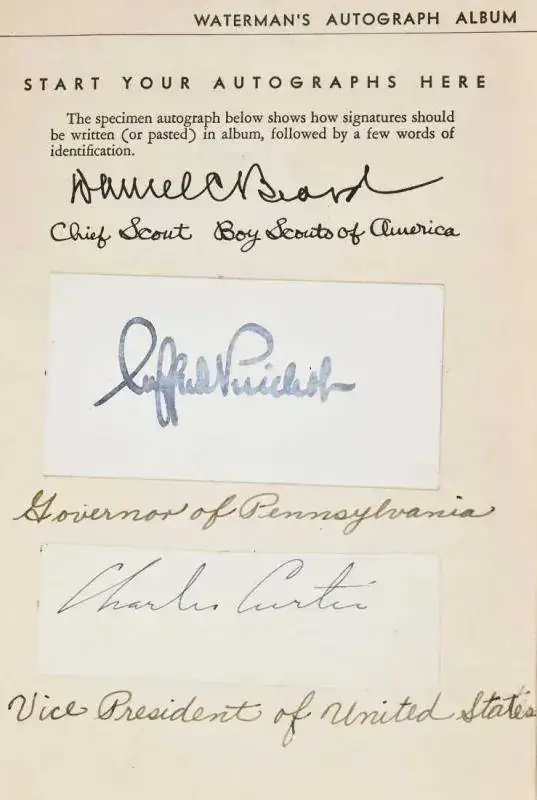 WATERMAN'S AUTOGRAPH ALBUM
START YOUR AUTOGRAPHS HERE
The specimen autograph below shows how signatures should
be written (or pasted) in album, followed by a few words of
identification.
Daniel C Beard
Chief Scout Boy Scouts of America
Gifford Pinchot
Governor of Pennsylvania
Charles Curtis
Vice President of United States